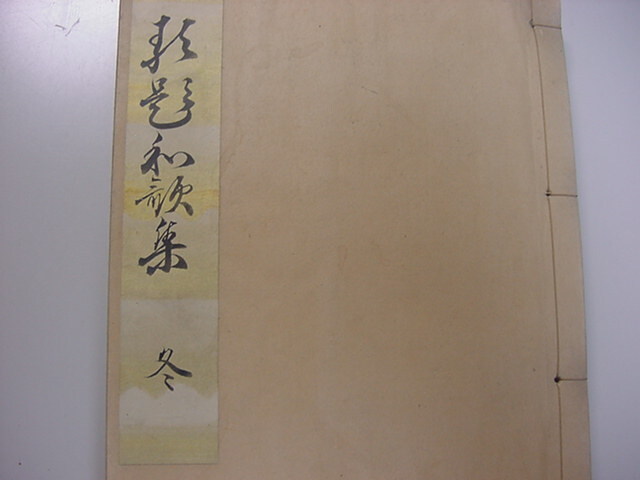 類題和歌集 冬